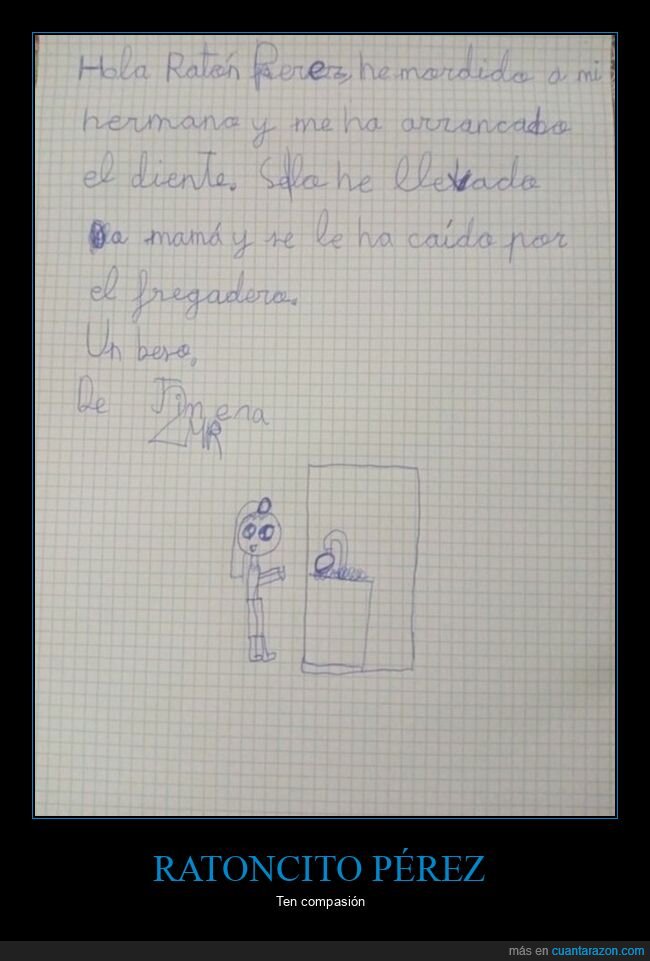 Hola Ratón Perez, he mordido a mi
hermano y me ha arrancado
el diente. Se lo he llevado
a mamá y se le ha caído por
el fregadero.
Un beso,
De Jimena
RATONCITO PÉREZ
Ten compasión
más en cuantarazon.com